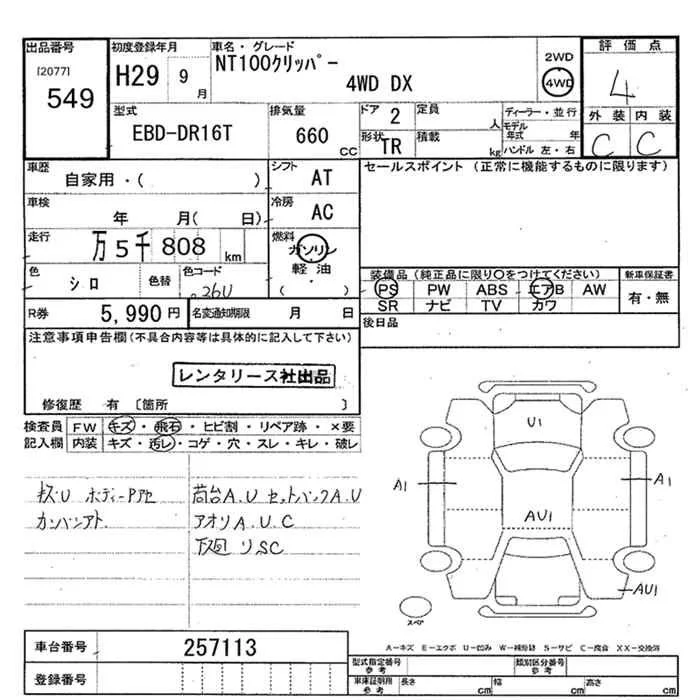 出品番号 初度登録年月 車名・グレード 2WD 評価点
[2077] H29 9月 NT100クリッパー 4WD
549 4WD DX 4
型式 排気量 ドア 2 定員 人 ディーラー・並行 外装 内装
EBD-DR16T 660 CC モデル年式 年
形状 TR 積載 kg ハンドル 左・右 C C
車歴 シフト セールスポイント (正常に機能するものに限ります)
自家用・( ) AT
車検 冷房
年 月( 日) AC
走行 燃料
万5千808 km ガソリン
軽油
色 色替 色コード ・
シロ 26U ( )
装備品(純正品に限り○をつけてください) 新車保証書
PS PW ABS エアB AW 有・無
SR ナビ TV カワ
R券 5,990円 名変通知期限 月 日
後日品
注意事項申告欄(不具合内容等は具体的に記入して下さい)
レンタリース社出品
修復歴 有 〔箇所 〕
検査員 FW キズ・飛石・ヒビ割・リペア跡・×要
記入欄 内装 キズ・汚レ・コゲ・穴・スレ・キレ・破レ
キズ・U ボディーP
カンバンアト
荷台A.U セットバックA.U
アオリA.U.C
下廻リSC
U1
A1
A1
AU1
AU1
スペア
A−キズ E−エクボ U−凹み W−補修跡 S−サビ C−腐食 XX−交換済
車台番号 257113
登録番号
型式指定番号 参考 類別区分番号 参考
車庫証明用 参考 長さ cm 幅 cm 高さ cm